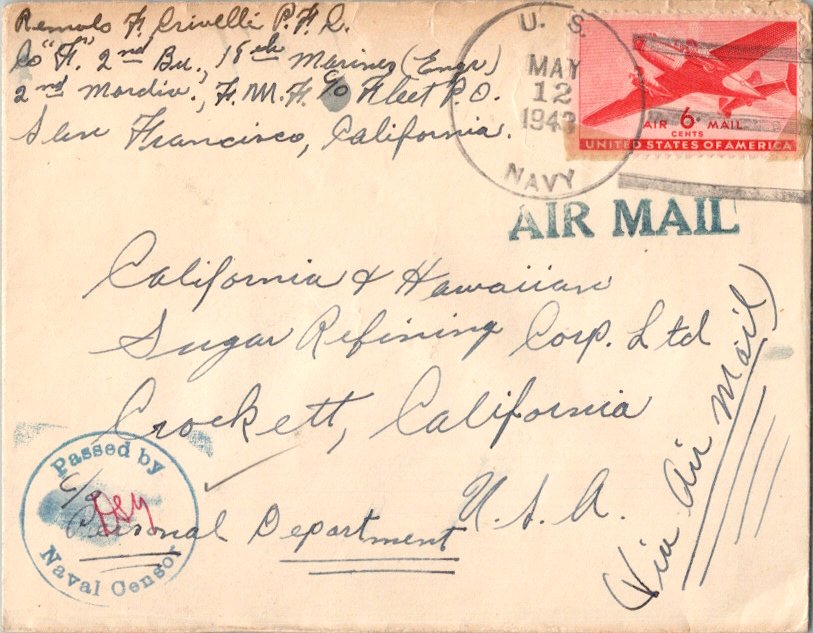 Remolo F. Crivelli P.F.C.
Co "F". 2nd Bn., 18th Marines (Engr)
2nd Mardiv., F.M.F. c/o Fleet P.O.
San Francisco, California.
U. S.
MAY
12
1943
NAVY
AIR 6¢ MAIL
CENTS
UNITED STATES OF AMERICA
AIR MAIL
California & Hawaiian
Sugar Refining Corp. Ltd
Crockett, California
U.S.A.
(Via Air Mail)
Passed by
c/o
Personal Department
Naval Censor